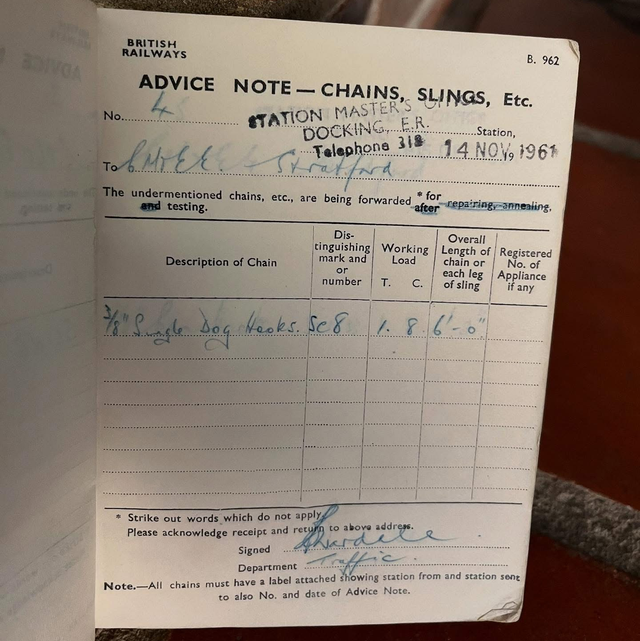 BRITISH
RAILWAYS
B. 962
ADVICE NOTE — CHAINS, SLINGS, Etc.
No. 48
STATION MASTER'S
DOCKING, E.R.
Station,
Telephone 318
14 NOV 1961
19
To Stratford
The undermentioned chains, etc., are being forwarded * for
after
repairing, annealing,
and testing.
Description of Chain
Dis-
tinguishing
mark and
or
number
Working
Load
T. C.
Overall
Length of
chain or
each leg
of sling
Registered
No. of
Appliance
if any
3/8" Single Dog Hooks. SC8 1. 8 6'-0"
* Strike out words which do not apply
Please acknowledge receipt and return to above address.
Signed
Department Traffic
Note.—All chains must have a label attached showing station from and station sent
to also No. and date of Advice Note.
ADVICE